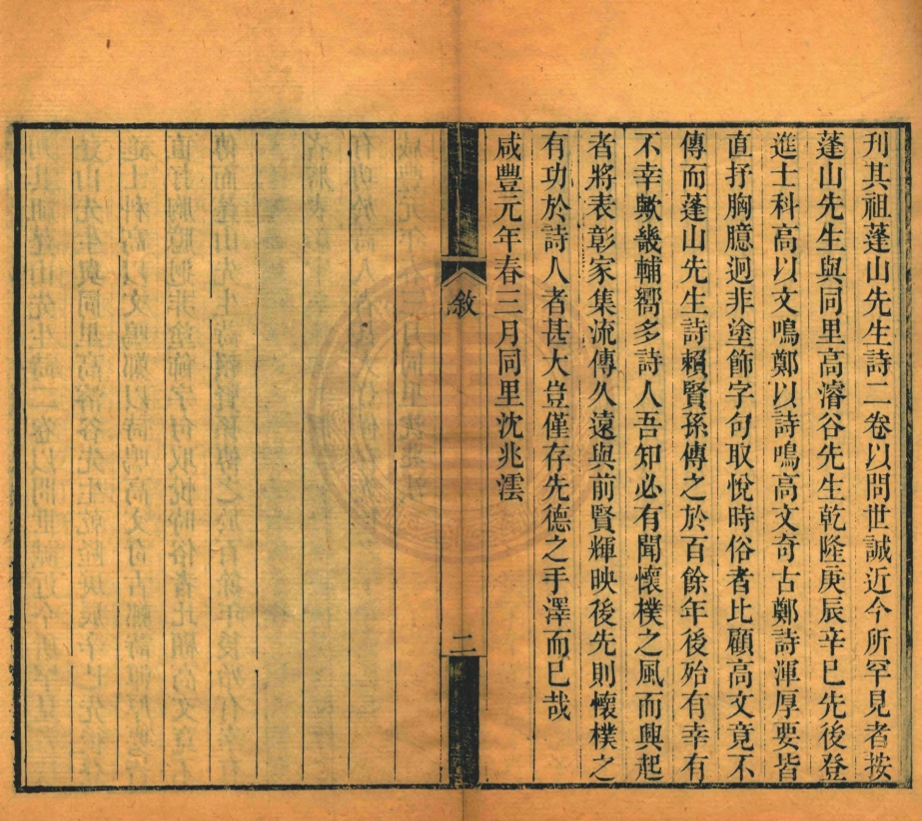 刋其祖蓬山先生詩二卷以問世誠近今所罕見者按
蓬山先生與同里高濬谷先生乾隆庚辰辛巳先後登
進士科高以文鳴鄭以詩鳴高文奇古鄭詩渾厚要皆
直抒胸臆迥非塗飾字句取悅時俗者比顧高文竟不
傳而蓬山先生詩賴賢孫傳之於百餘年後殆有幸有
不幸歟畿輔嚮多詩人吾知必有聞懷樸之風而興起
者將表彰家集流傳久遠與前賢輝映後先則懷樸之
有功於詩人者甚大豈僅存先德之手澤而巳哉
咸豐元年春三月同里沈兆澐
敘
二